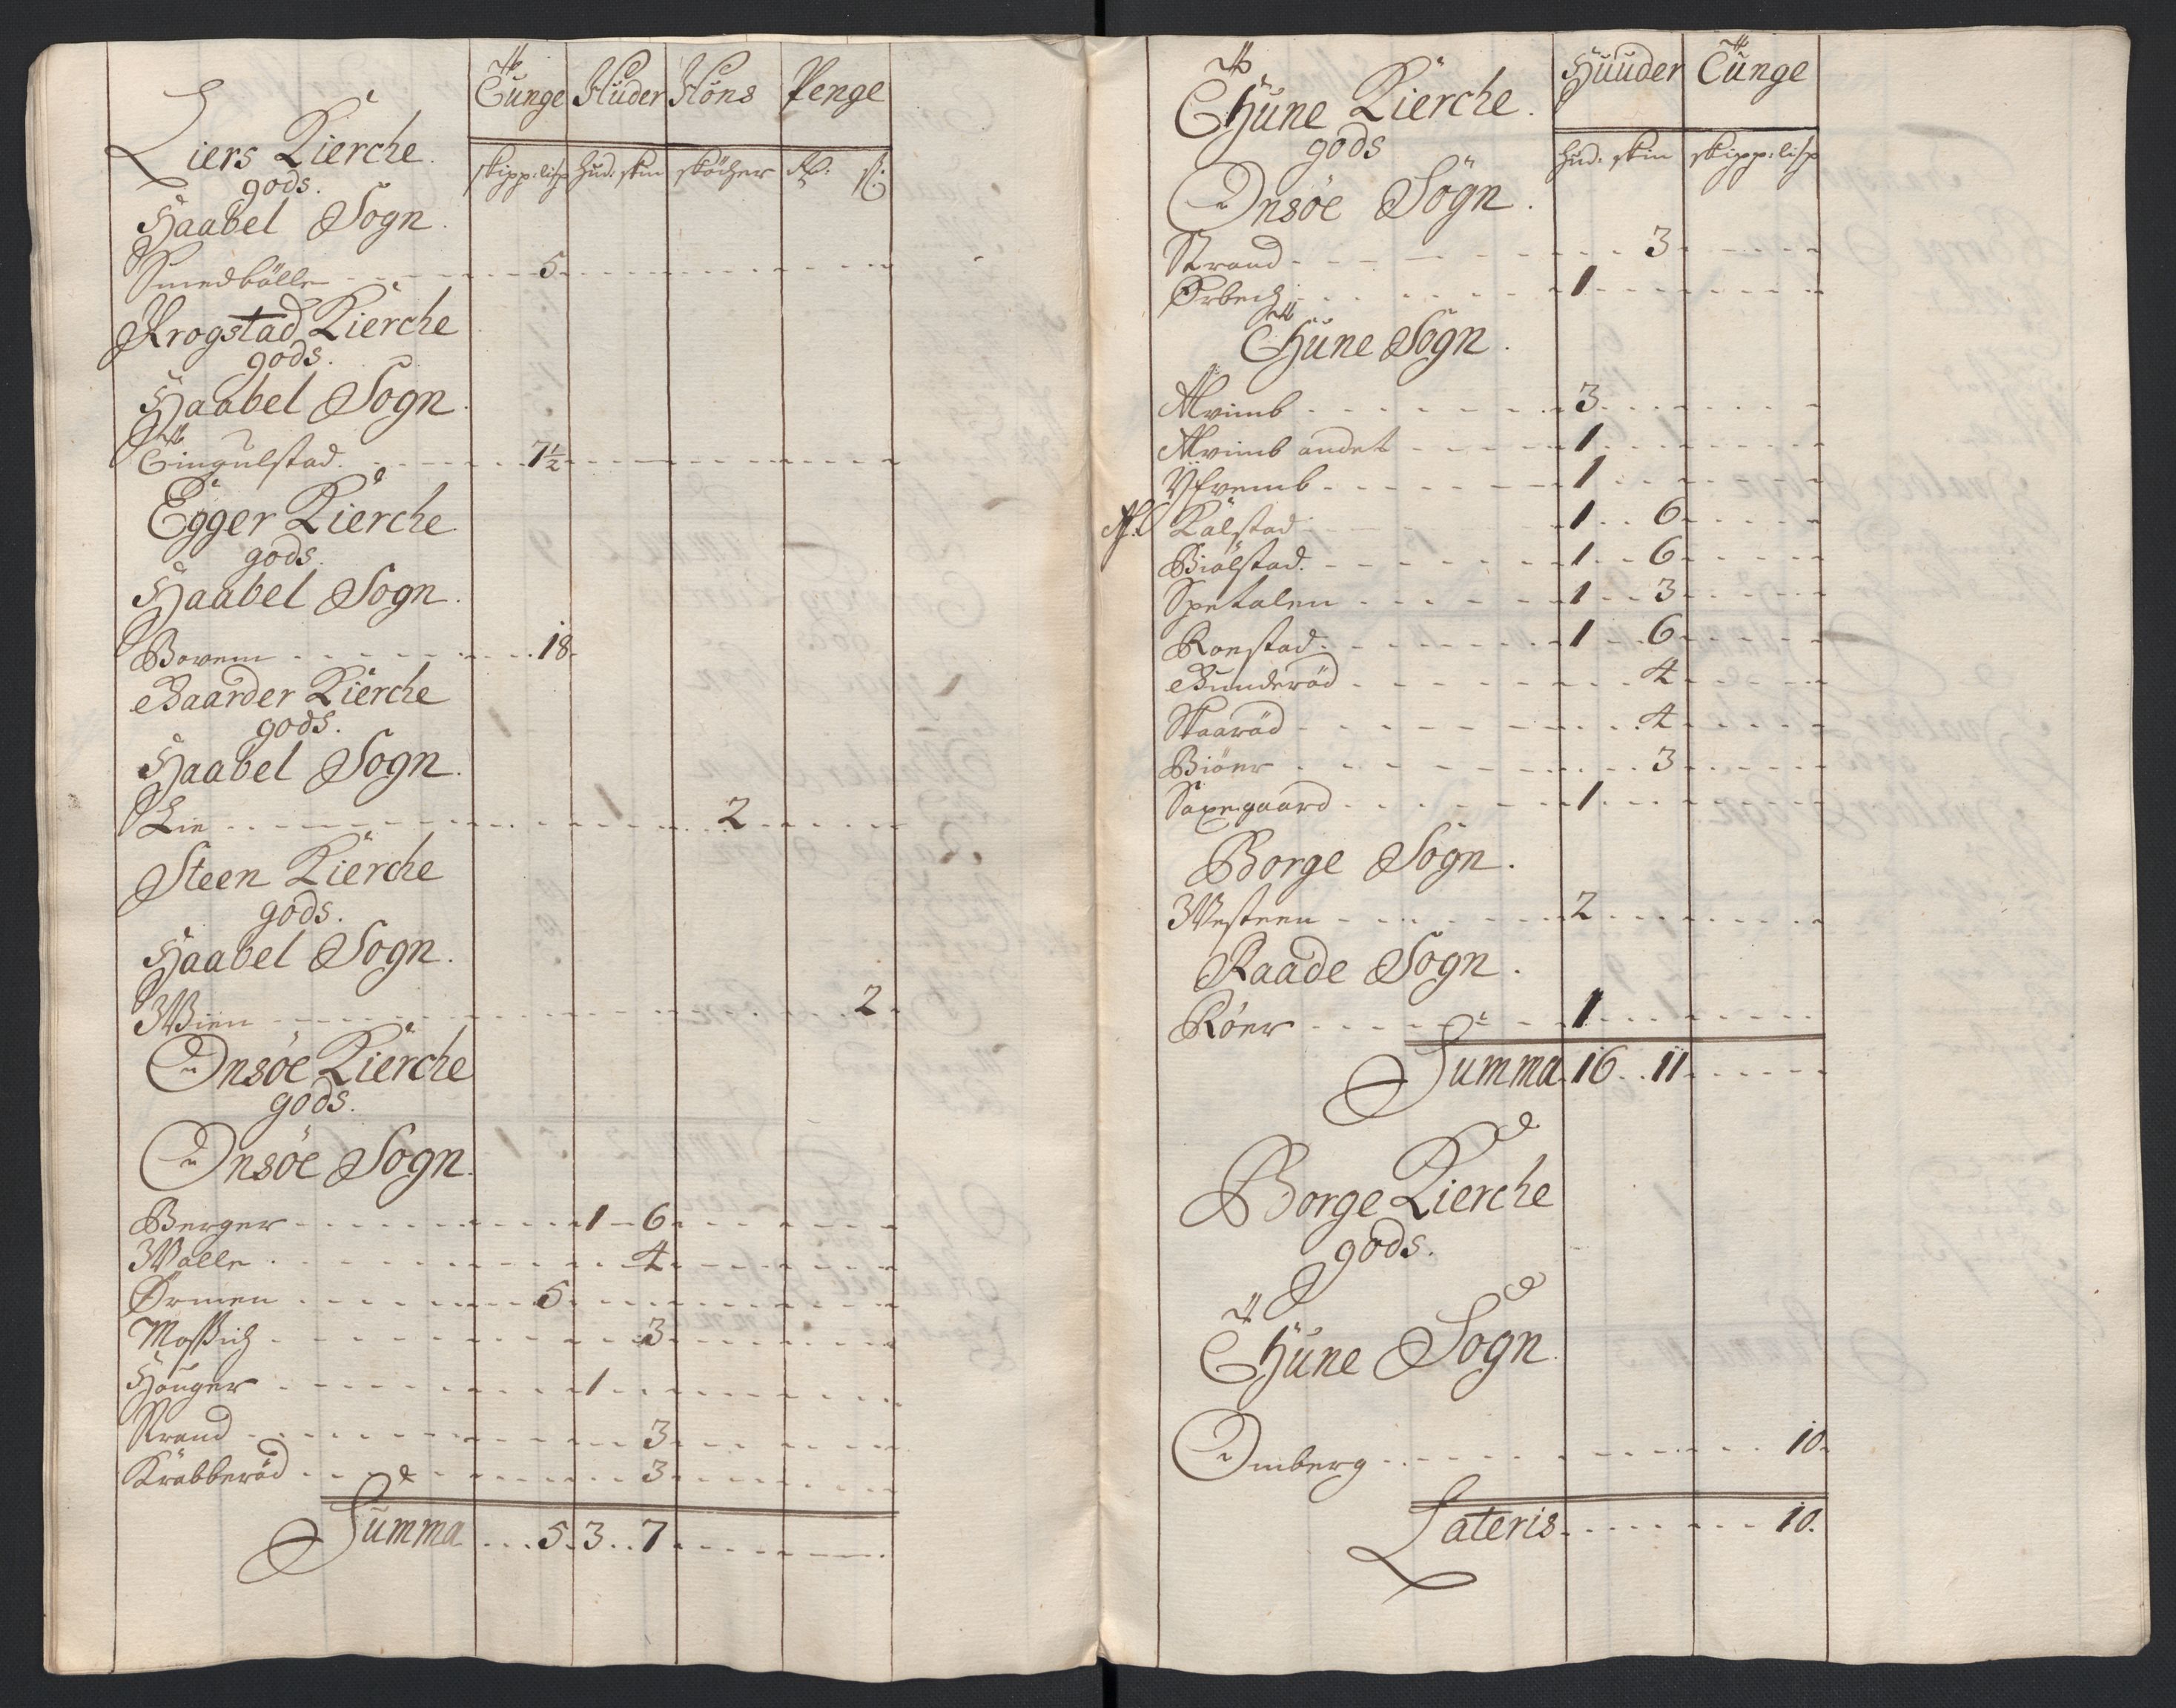 Tunge Huder Höns Penge
Liers Kierche
gods.
skipp: lisp hud: skin
Haabel Sogn.
Smedbölle 5
Krogstad Kierche
gods.
Haabel Sogn.
Tingulstad 7½
Egger Kierche
gods.
Haabel Sogn.
Borem 18
Baarder Kierche
gods.
Haabel Sogn.
Lie 2
Steen Kierche
gods.
Haabel Sogn.
Wien 2
Onsöe Kierche
gods.
Onsöe Sogn.
Berger 1 6
Walle 4
Ørmen 5
Mossich 3
Houger 1
Strand 3
Krabberöd 3
Summa 5 3 7
Huuder Tunge
Thune Kierche.
gods
hud: skin skipp: lisp
Onsöe Sogn.
Strand 3
Ørbech 1
Thune Sogn.
Alvimb 3
Alvimb andet 1
Yfremb 1
Kålstad 1 6
Biölstad 1 6
Spetalen 1 3
Ronstad 1 6
Bunderöd 4
Skaaröd 4
Biöer 3
Saxegaard 1
Borge Sogn.
Westeen 2
Raade Sogn.
Röer 1
Summa 16 11
Borge Kierche
gods.
Thune Sogn.
Omberg 10
Lateris 10.